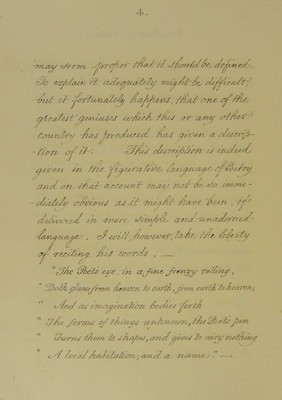 4.
may seem proper that it should be defined.
To explain it adequately might be difficult;
but it fortunately happens, that one of the
greatest geniuses which this or any other
country has produced has given a descrip-
-tion of it. This description is indeed
given in the figurative language of Poetry
and on that account may not be so imme-
-diately obvious as it might have been, if
delivered in more simple and unadorned
language. I will, however, take the liberty
of reciting his words, —
"The Poet's eye, in a fine frenzy rolling,
"Doth glance from heaven to earth, from earth to heaven;
" And as imagination bodies forth
" The forms of things unknown, the Poet's pen
" Turns them to shapes, and gives to airy nothing
" A local habitation, and a name." —